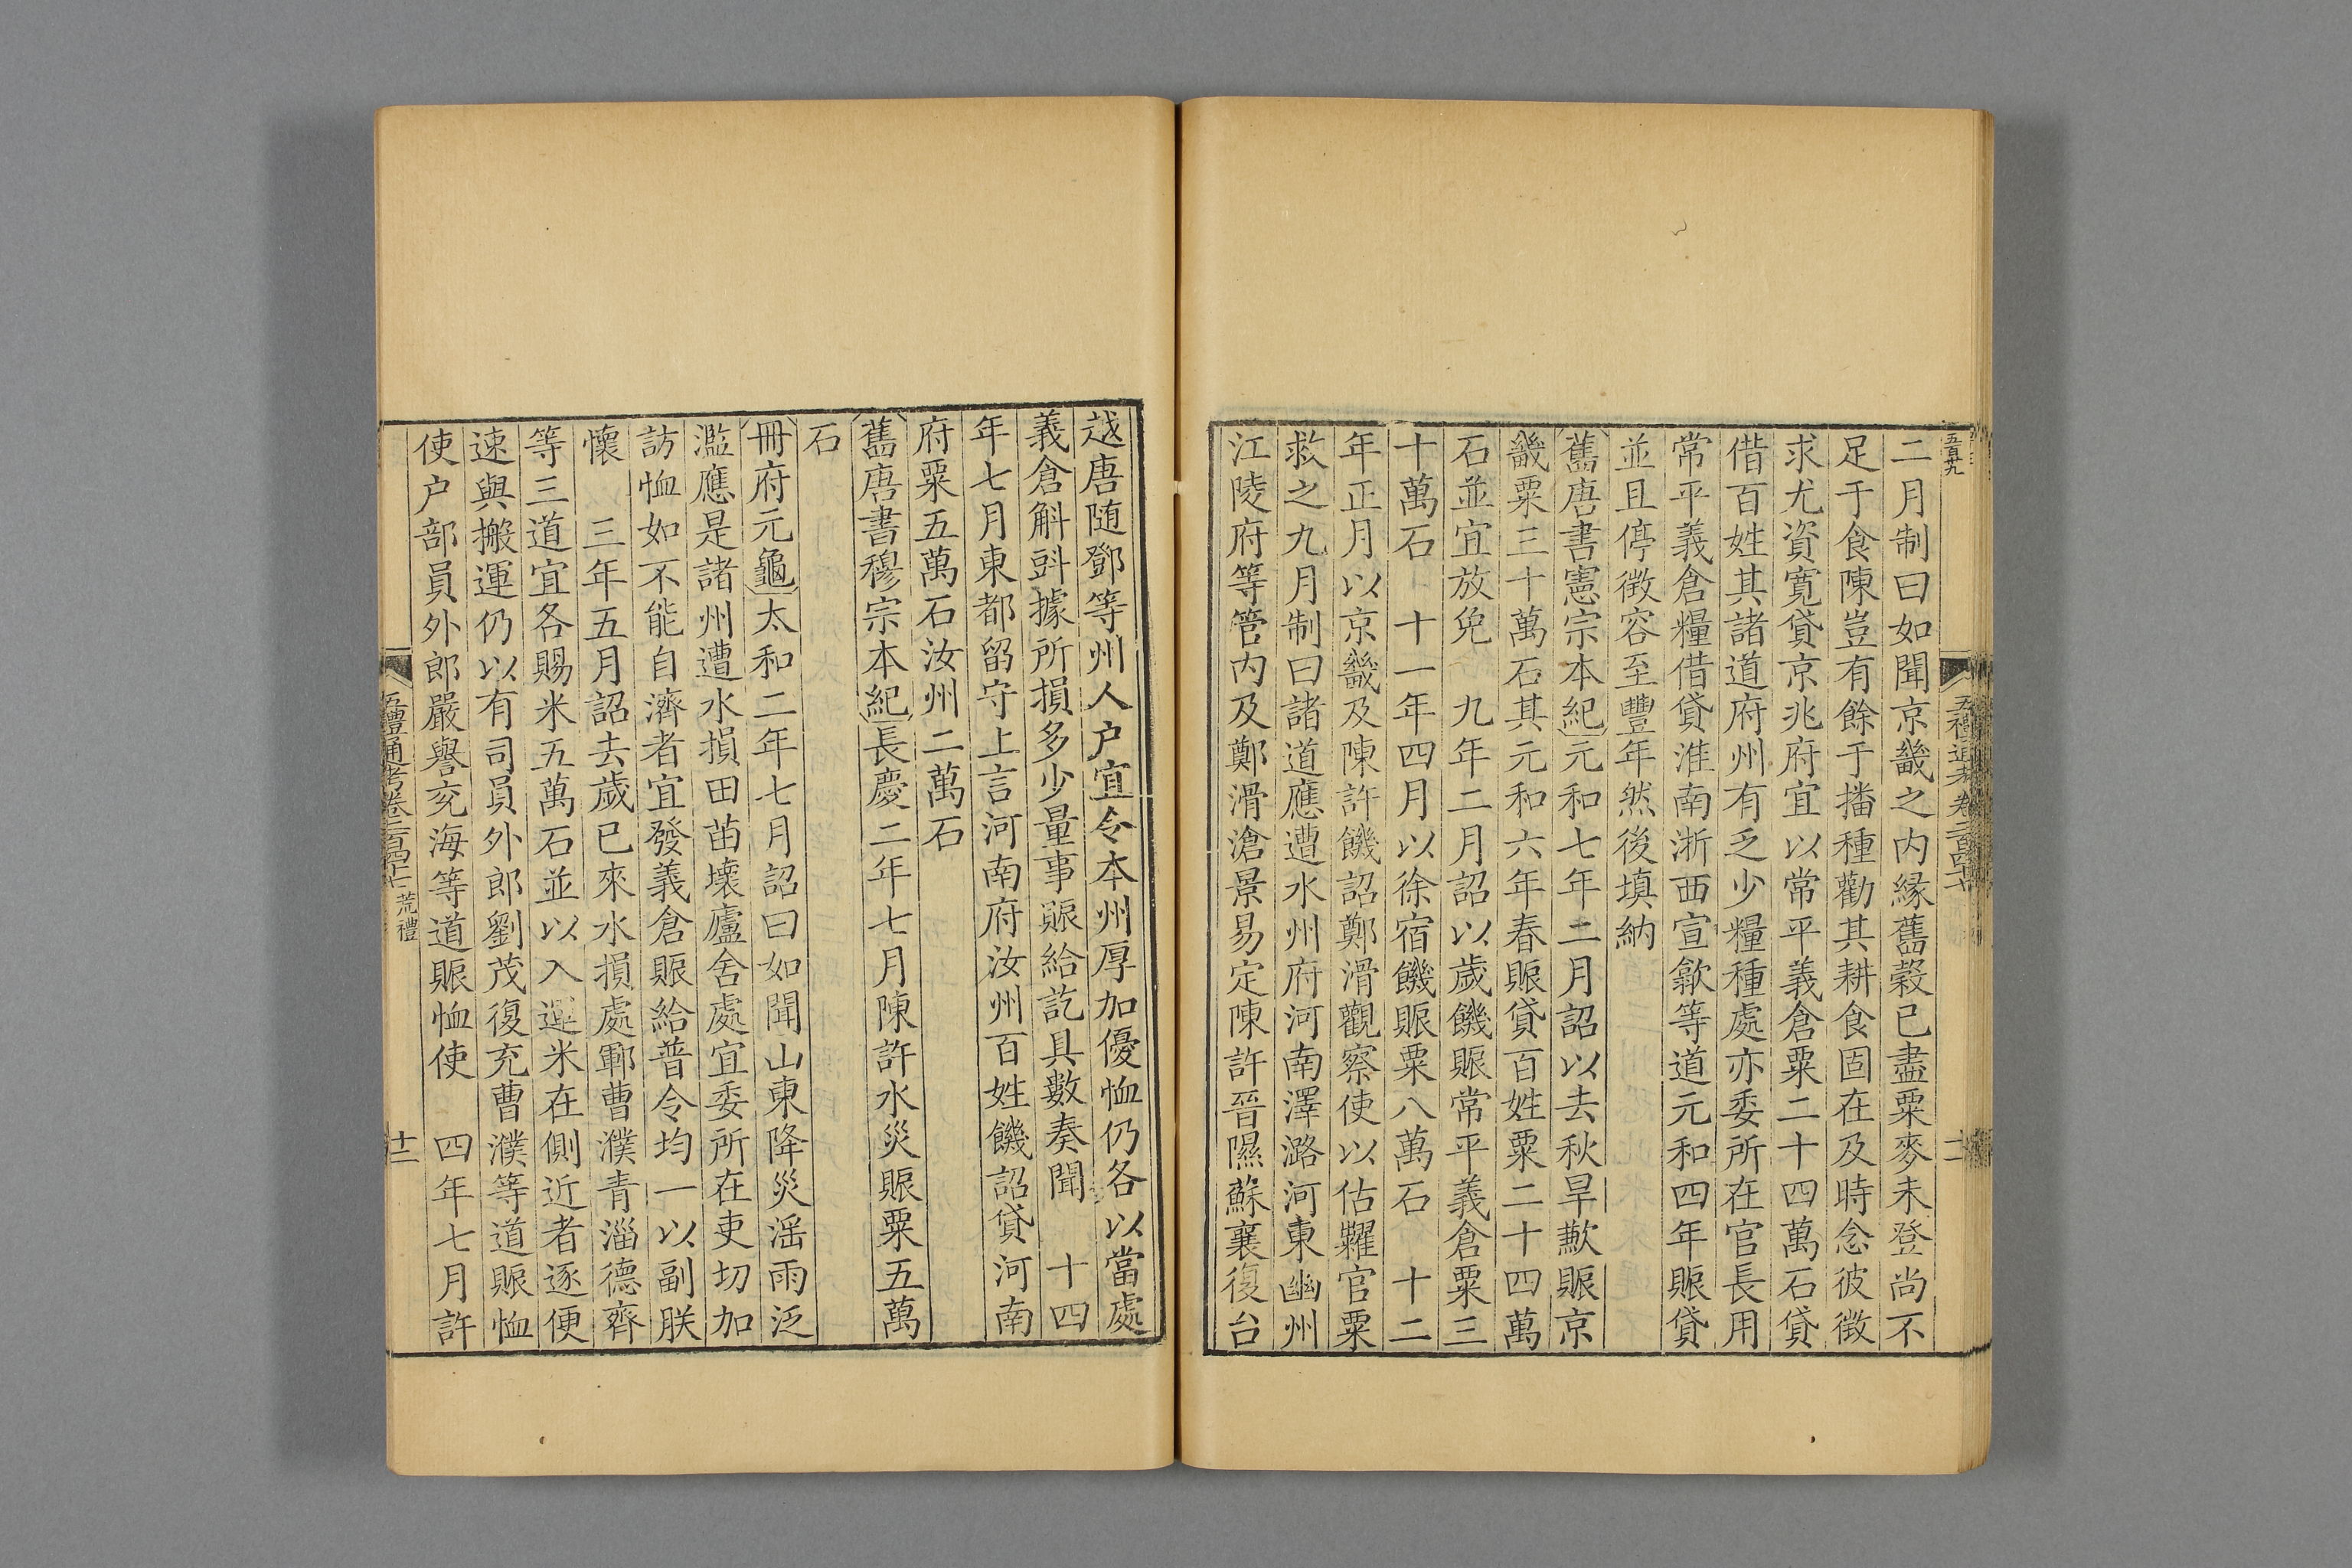 二月制曰如聞京畿之内緣舊穀已盡粟麥未登尚不
足于食陳豈有餘于播種勸其耕食固在及時念彼徵
求尤資寬貸京兆府宜以常平義倉粟二十四萬石貸
借百姓其諸道府州有乏少糧種處亦委所在官長用
常平義倉糧借貸淮南浙西宣歙等道元和四年賑貸
並且停徵容至豐年然後填納
舊唐書憲宗本紀元和七年二月詔以去秋旱歉賑京
畿粟三十萬石其元和六年春賑貸百姓粟二十四萬
石並宜放免 九年二月詔以歲饑賑常平義倉粟三
十萬石 十一年四月以徐宿饑賑粟八萬石 十二
年正月以京畿及陳許饑詔鄭滑觀察使以估糶官粟
救之九月制曰諸道應遭水州府河南澤潞河東幽州
江陵府等管内及鄭滑滄景易定陳許晉隰蘇襄復台
越唐随鄧等州人户宜令本州厚加優恤仍各以當處
義倉斛㪷據所損多少量事賑給訖具數奏聞 十四
年七月東都留守上言河南府汝州百姓饑詔貸河南
府粟五萬石汝州二萬石
舊唐書穆宗本紀長慶二年七月陳許水災賑粟五萬
石
冊府元龜太和二年七月詔曰如聞山東降災滛雨泛
濫應是諸州遭水損田苗壞廬舍處宜委所在吏切加
訪恤如不能自濟者宜發義倉賑給普令均一以副朕
懷 三年五月詔去歲已來水損處鄆曹濮青淄德齊
等三道宜各賜米五萬石並以入運米在側近者逐便
速與搬運仍以有司員外郎劉茂復充曹濮等道賑恤
使户部員外郎嚴譽兗海等道賑恤使 四年七月許
五禮通考卷二百四十七 荒禮
十二